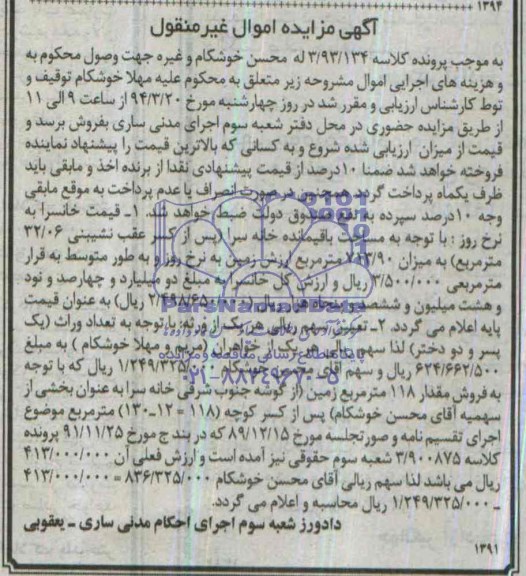 ۱۳۹۴
آگهی مزایده اموال غیرمنقول
به موجب پرونده کلاسه ۳/۹۳/۱۳۴ له محسن خوشکام و غیره جهت وصول محکوم به
و هزینه های اجرایی اموال مشروحه زیر متعلق به محکوم علیه مهلا خوشکام توقیف و
توط کارشناس ارزیابی و مقرر شد در روز چهارشنبه مورخ ۹۴/۳/۲۰ از ساعت ۹ الی ۱۱
از طریق مزایده حضوری در محل دفتر شعبه سوم اجرای مدنی ساری بفروش برسد و
قیمت از میزان ارزیابی شده شروع و به کسانی که بالاترین قیمت را پیشنهاد نماینده
فروخته خواهد شد ضمنا ۱۰درصد از قیمت پیشنهادی نقدا از برنده اخذ و مابقی باید
ظرف یکماه پرداخت گردد همچنین در صورت انصراف یا عدم پرداخت به موقع مابقی
وجه ۱۰درصد سپرده به نفع صندوق دولت ضبط خواهد شد. ۱ـ قیمت خانسرا به
نرخ روز : با توجه به مساحت باقیمانده خانه سرا (پس از کسر عقب نشینی ۳۲/۰۶
مترمربع) به میزان ۷۱۳/۹۰ مترمربع ارزش زمین به نرخ روز و به طور متوسط به قرار
مترمربعی ۳/۵۰۰/۰۰۰ ریال و ارزش کل خانسرا به مبلغ دو میلیارد و چهارصد و نود
و هشت میلیون و ششصد و پنجاه هزار ریال (۲/۴۹۸/۶۵۰/۰۰۰ ریال) به عنوان قیمت
پایه اعلام می گردد. ۲ـ تعیین سهم ریالی هر یک از ورثه: با توجه به تعداد وراث (یک
پسر و دو دختر) لذا سهم ریالی هر یک از خواهران (مریم و مهلا خوشکام ) به مبلغ
۶۲۴/۶۶۲/۵۰۰ ریال و سهم آقای محسن خوشکام ۱/۲۴۹/۳۲۵/۰۰۰ ریال که با توجه
به فروش مقدار ۱۱۸ مترمربع زمین (از گوشه جنوب شرقی خانه سرا به عنوان بخشی از
سهمیه آقای محسن خوشکام) پس از کسر کوچه (۱۱۸ = ۱۲–۱۳۰) مترمربع موضوع
اجرای تقسیم نامه و صورتجلسه مورخ ۸۹/۱۲/۱۵ که در بند ج مورخ ۹۱/۱۱/۲۵ پرونده
کلاسه ۳/۹۰۰۸۷۵ شعبه سوم حقوقی نیز آمده است و ارزش فعلی آن ۴۱۳/۰۰۰/۰۰۰
ریال می باشد لذا سهم ریالی آقای محسن خوشکام ۸۳۶/۳۲۵/۰۰۰ = ۴۱۳/۰۰۰/۰۰۰
ـ ۱/۲۴۹/۳۲۵/۰۰۰ ریال محاسبه و اعلام می گردد.
دادورز شعبه سوم اجرای احکام مدنی ساری ـ یعقوبی
۱۳۹۱
ParsNamadData
پایگاه اطلاع رسانی مناقصه و مزایده
۰۲۱-۸۸۳۴۹۶۷۰-۵